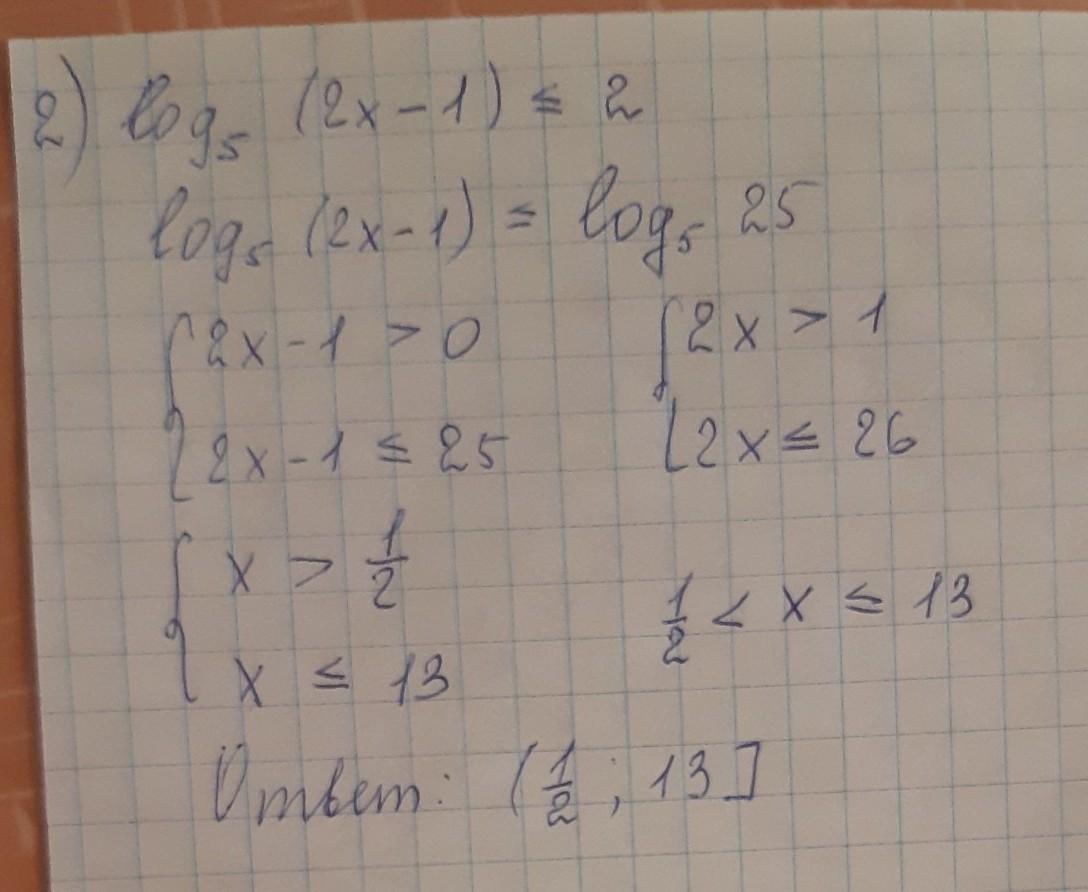 2) log₅ (2x - 1) ≤ 2
log₅ (2x - 1) ≤ log₅ 25
{ 2x - 1 > 0 { 2x > 1
{ 2x - 1 ≤ 25 { 2x ≤ 26
{ x > 1/2
1/2 < x ≤ 13
{ x ≤ 13
Ответ: (1/2 ; 13]